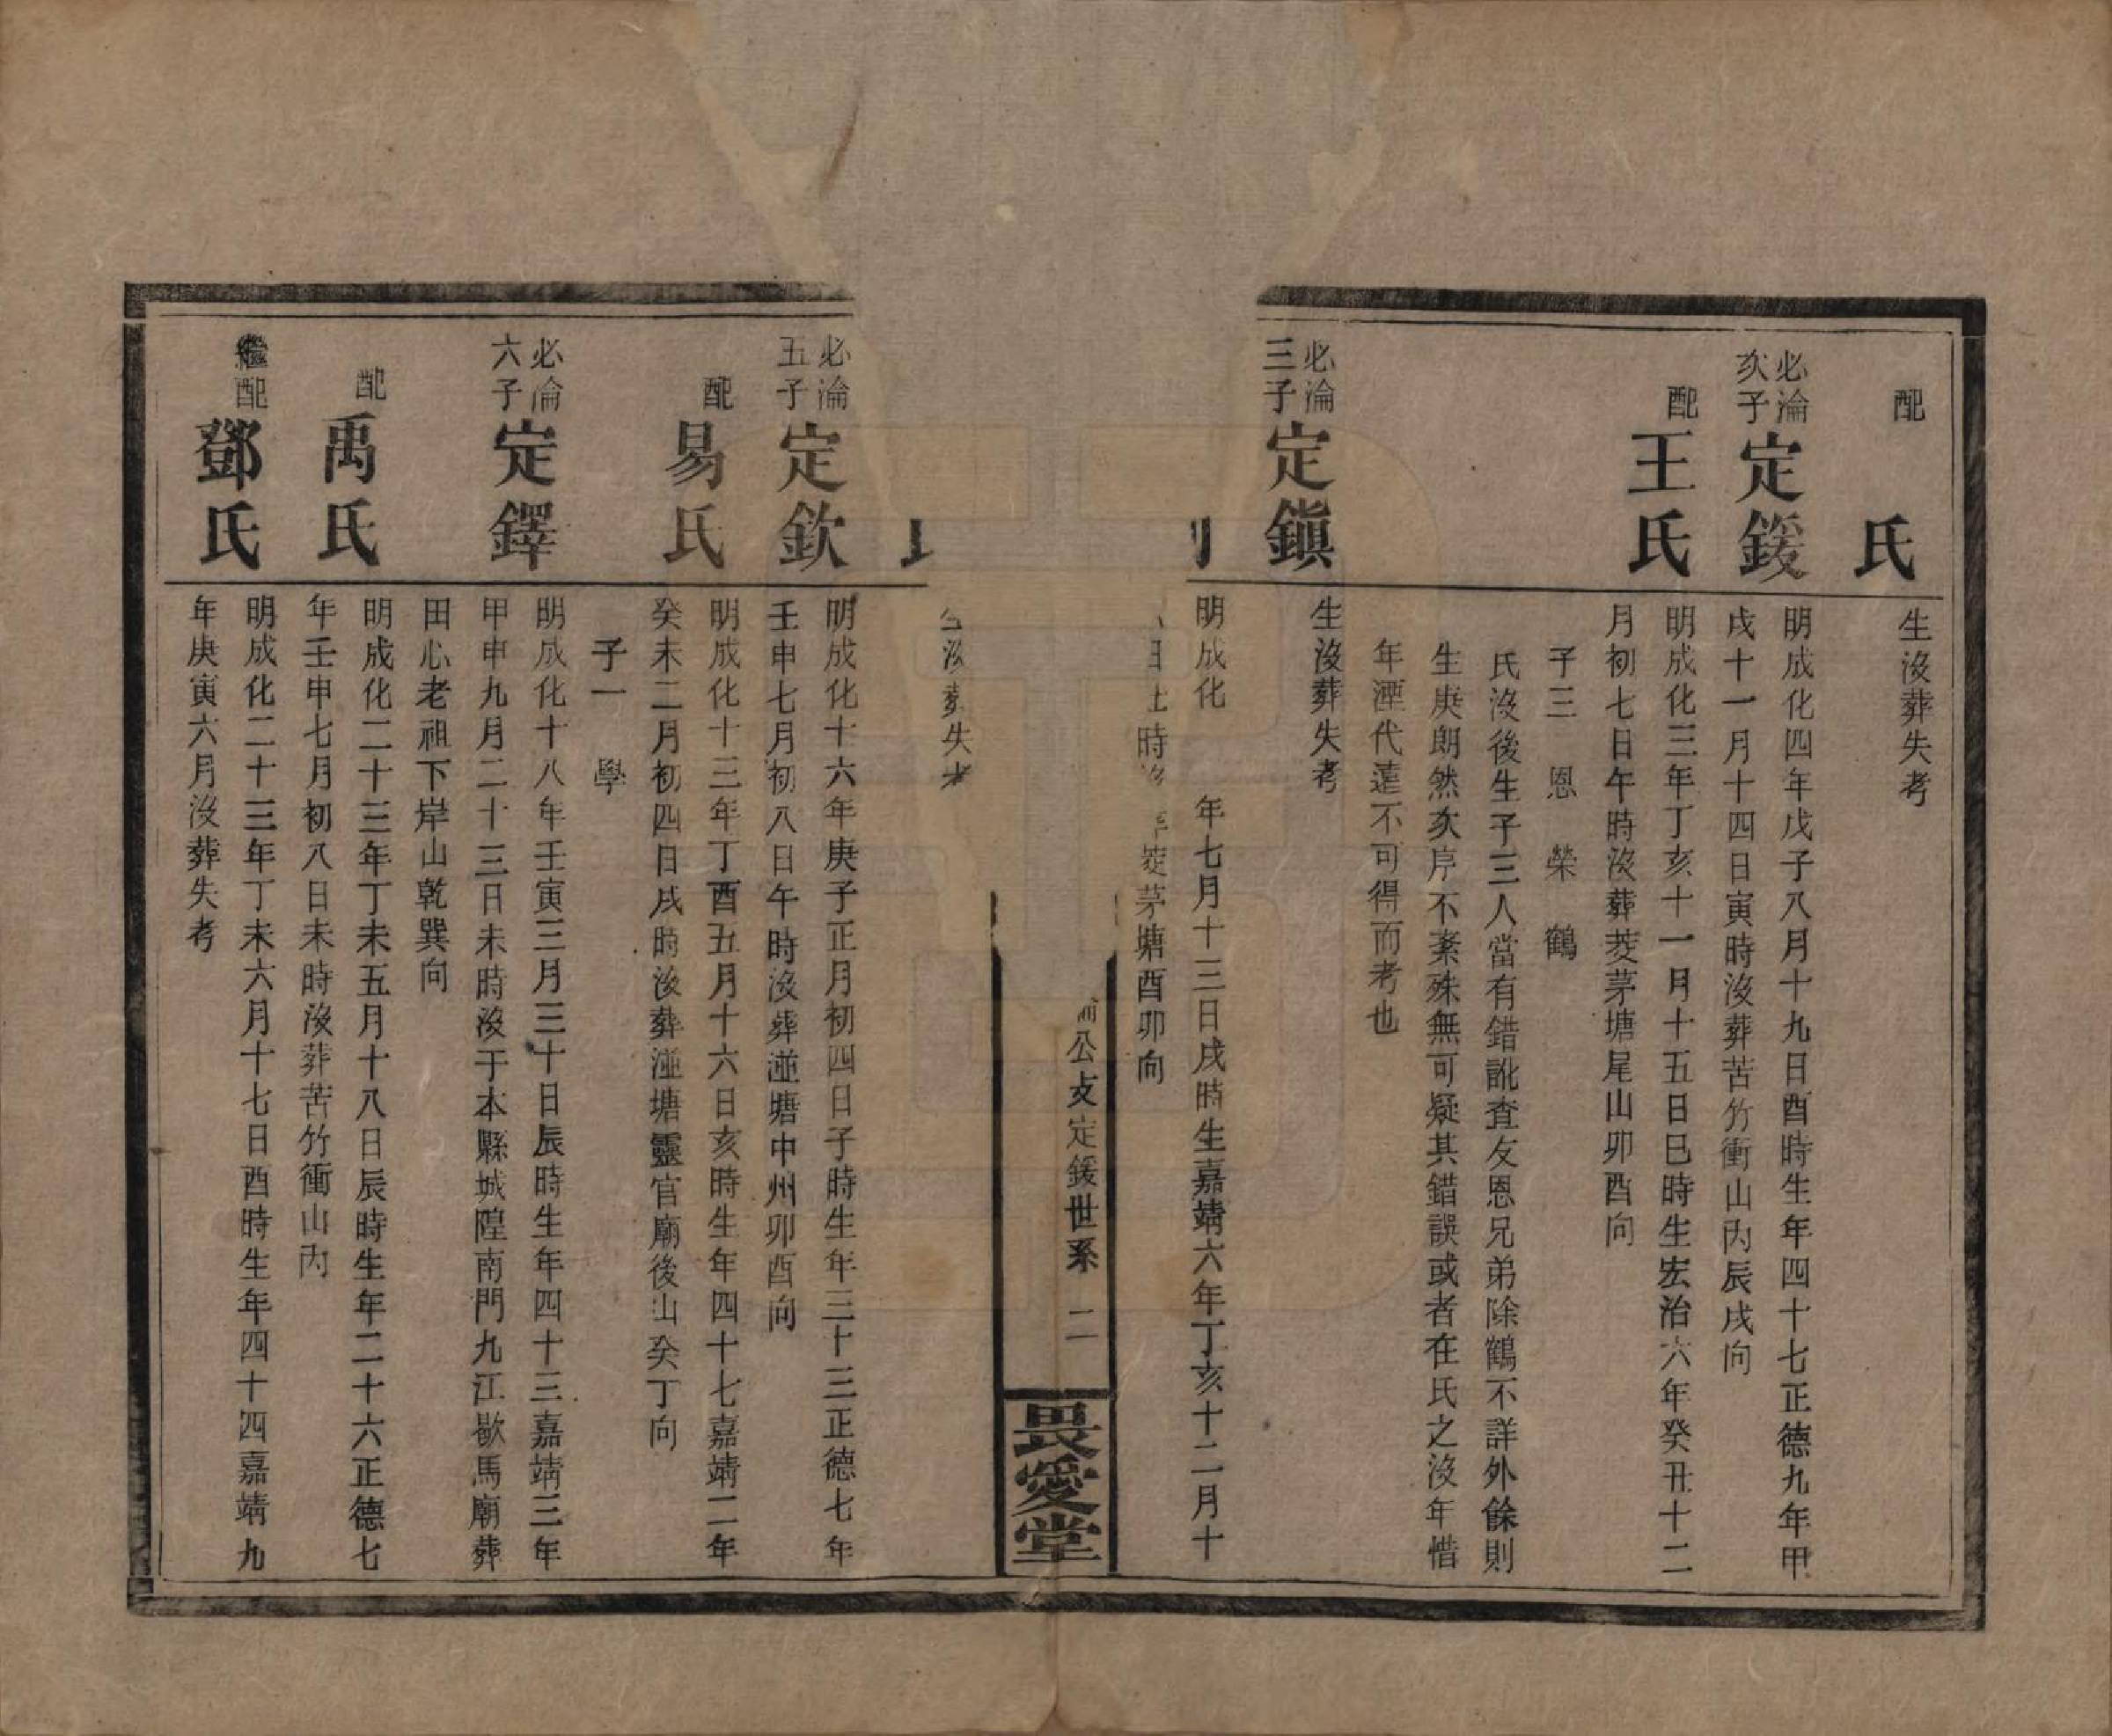 配
氏
生沒葬失考
必淪
次子
定鍰
明成化四年戊子八月十九日酉時生年四十七正德九年甲
戌十一月十四日寅時沒葬苦竹衝山內辰戌向
配
王氏
明成化三年丁亥十一月十五日巳時生宏治六年癸丑十二
月初七日午時沒葬茭茅塘尾山卯酉向
子三 恩 榮 鶴
氏沒後生子三人當有錯訛查友恩兄弟除鶴不詳外餘則
生庚朗然次序不紊殊無可疑其錯誤或者在氏之沒年惜
年湮代遠不可得而考也
必淪
三子
定鎭
生沒葬失考
明成化 年七月十三日戌時生嘉靖六年丁亥十二月十
日 時 茭茅塘酉卯向
公支定鍰世系 二
畏愛堂
沒葬失
必淪
五子
定欽
明成化十六年庚子正月初四日子時生年三十三正德七年
壬申七月初八日午時沒葬湴塘中州卯酉向
配
易氏
明成化十三年丁酉五月十六日亥時生年四十七嘉靖二年
癸未二月初四日戌時沒葬湴塘靈官廟後山癸丁向
子一 學
必淪
六子
定鐸
明成化十八年壬寅三月三十日辰時生年四十三嘉靖三年
甲申九月二十三日未時沒于本縣城隍南門九江歇馬廟葬
田心老祖下岸山乾巽向
配
禹氏
明成化二十三年丁未五月十八日辰時生年二十六正德七
年壬申七月初八日未時沒葬苦竹衝山內
繼配
鄧氏
明成化二十三年丁未六月十七日酉時生年四十四嘉靖九
年庚寅六月沒葬失考